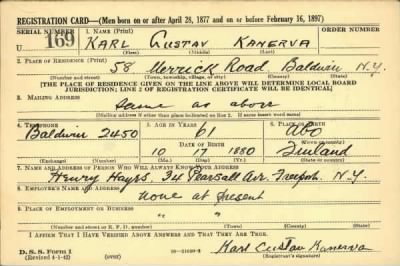 REGISTRATION CARD—(Men born on or after April 28, 1877 and on or before February 16, 1897)
SERIAL NUMBER 1. NAME (Print) ORDER NUMBER
U 169 KARL GUSTAV KANERVA
(First) (Middle) (Last)
2. PLACE OF RESIDENCE (Print)
58 Merrick Road, Baldwin N.Y.
(Number and street) (Town, township, village, or city) (County) (State)
[THE PLACE OF RESIDENCE GIVEN ON THE LINE ABOVE WILL DETERMINE LOCAL BOARD
JURISDICTION; LINE 2 OF REGISTRATION CERTIFICATE WILL BE IDENTICAL]
3. MAILING ADDRESS
Same as above
[Mailing address if other than place indicated on line 2. If same insert word same]
4. TELEPHONE 5. AGE IN YEARS 6. PLACE OF BIRTH
Baldwin 2450 61 Abo
DATE OF BIRTH (Town or county)
10 17 1880 Finland
(Exchange) (Number) (Mo.) (Day) (Yr.) (State or country)
7. NAME AND ADDRESS OF PERSON WHO WILL ALWAYS KNOW YOUR ADDRESS
Henry Hayes, 34 Pearsall Ave. Freeport. N.Y.
8. EMPLOYER'S NAME AND ADDRESS
None at present
9. PLACE OF EMPLOYMENT OR BUSINESS
" " "
(Number and street or R. F. D. number) (Town) (County) (State)
I AFFIRM THAT I HAVE VERIFIED ABOVE ANSWERS AND THAT THEY ARE TRUE.
D. S. S. Form 1
(Revised 4-1-42) (over) Karl Gustav Kanerva
(Registrant's signature)